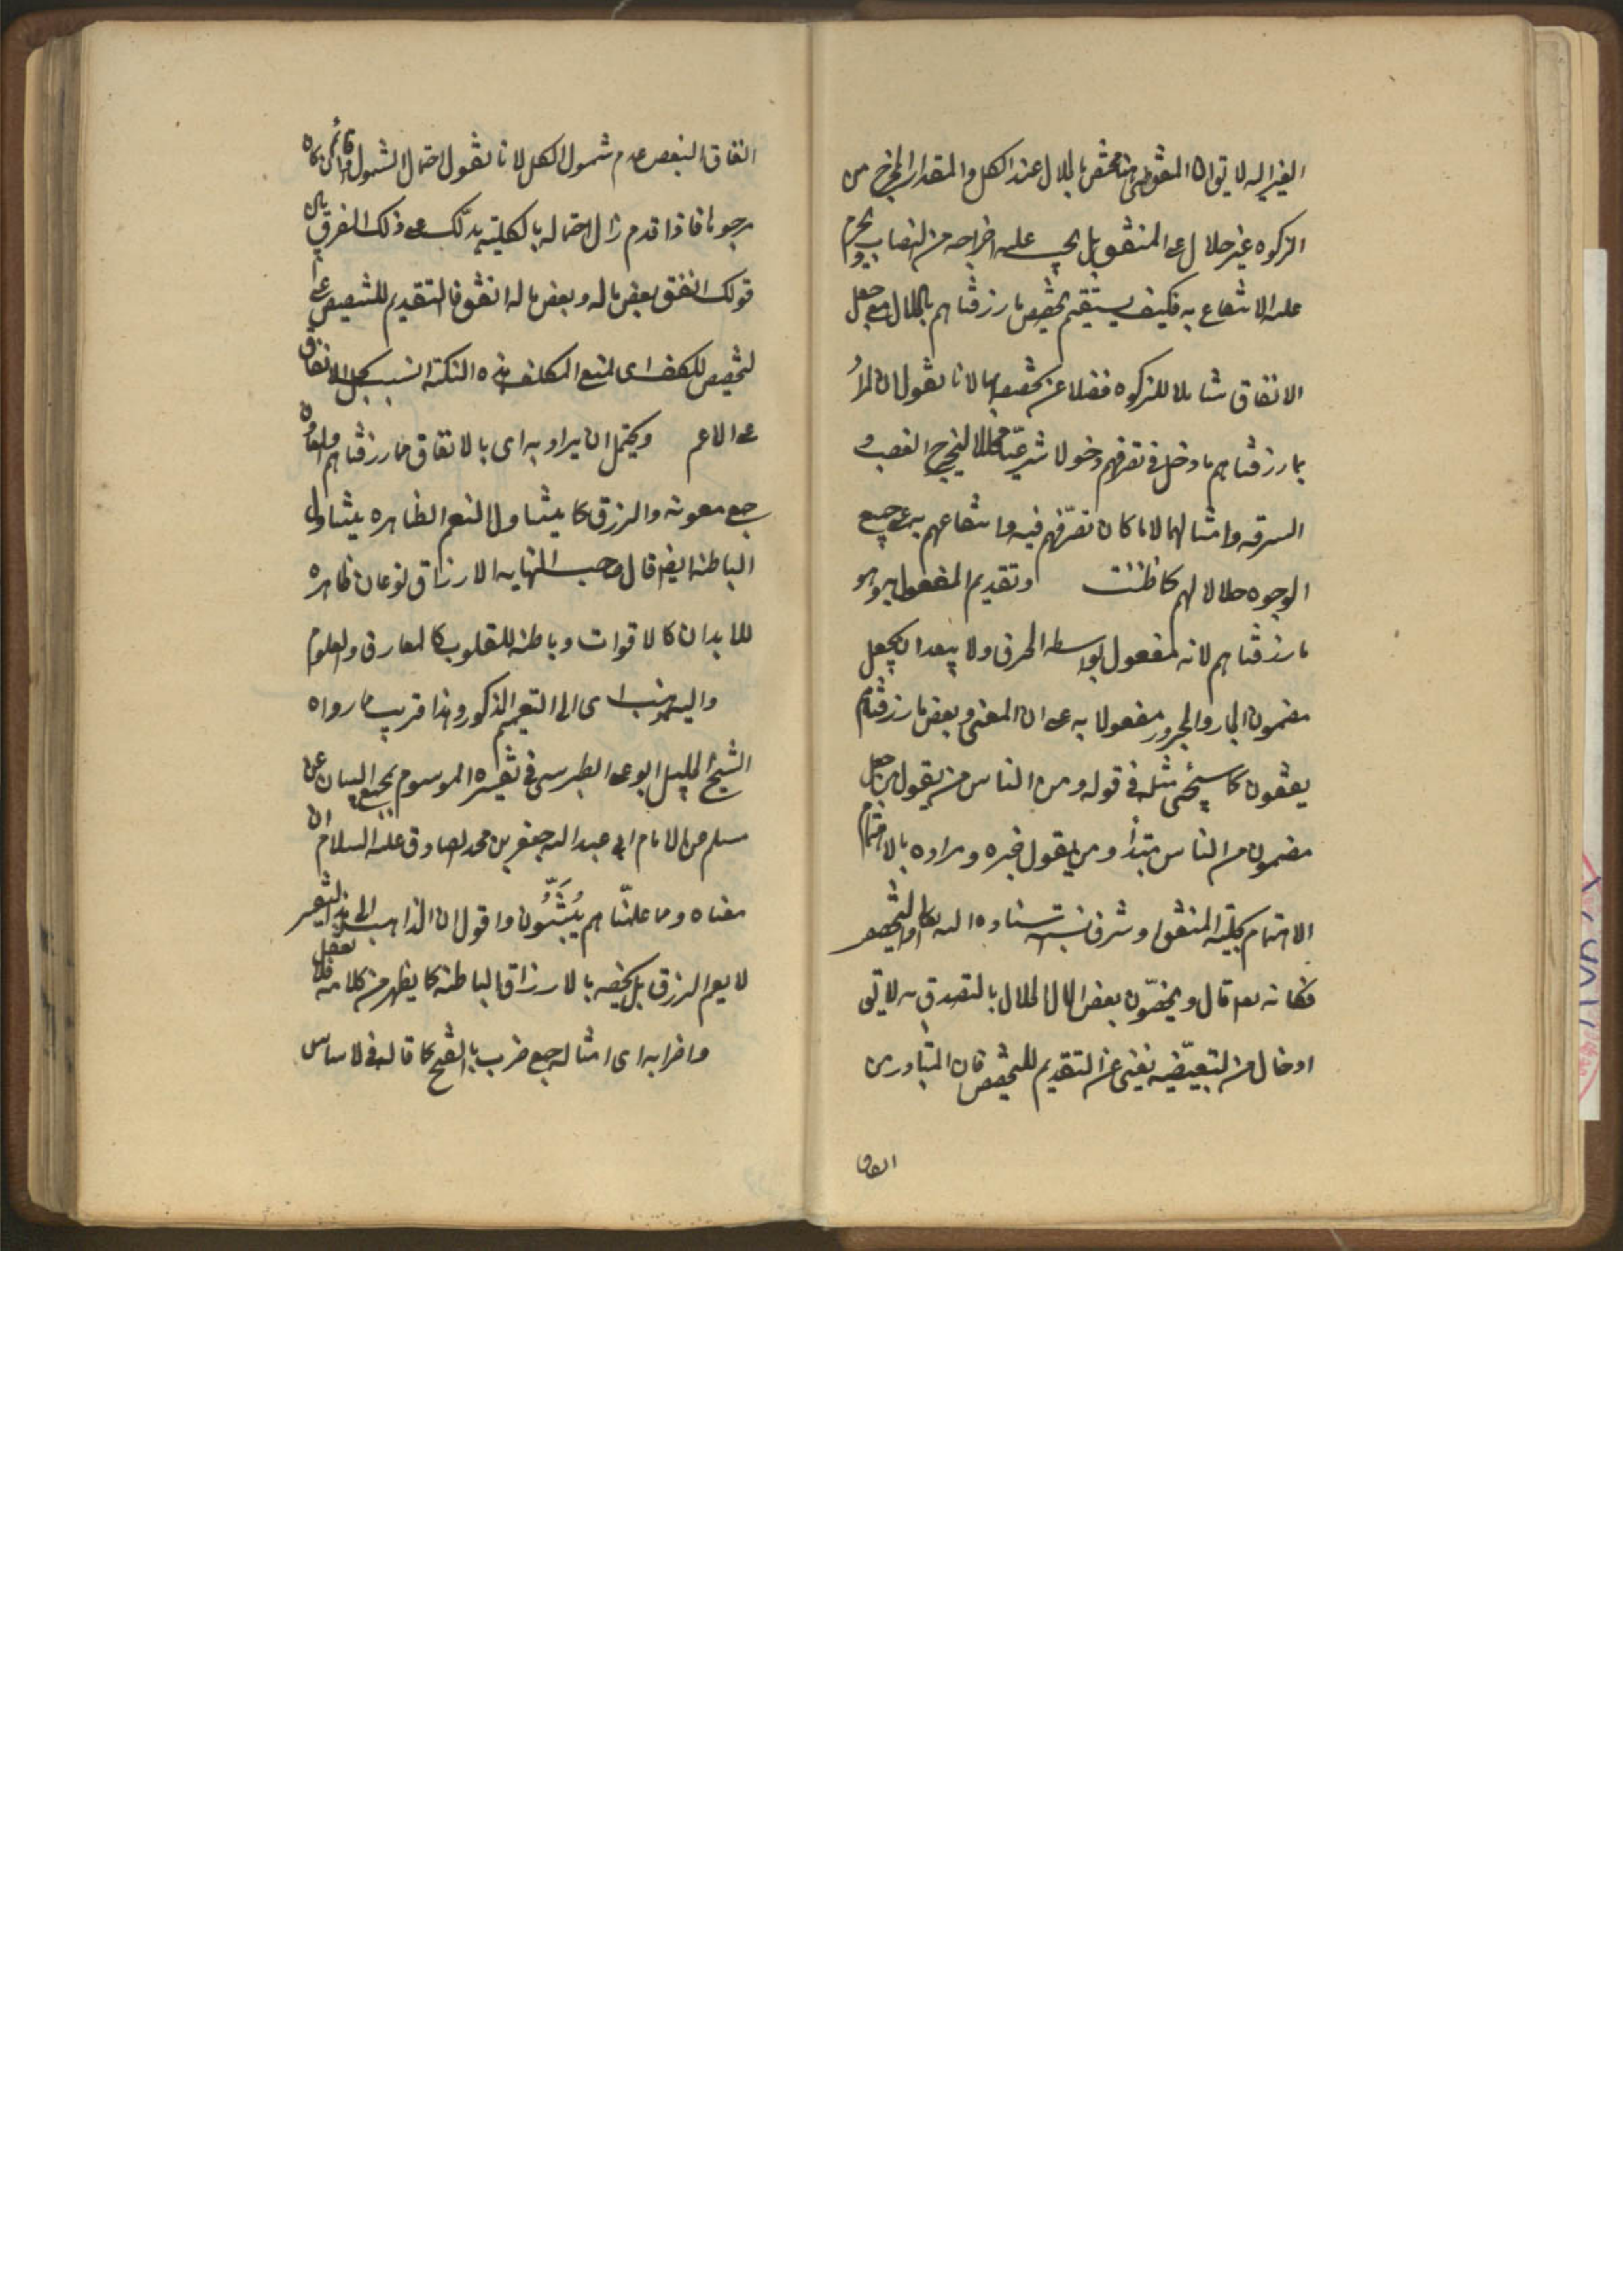 الغير اليه لا يق ان المنفق مختص بالحلال عند الكل والمقدار المخرج من
الزكوة غير حلال على المنفق بل يجب عليه اخراجه من النصاب ويحرم
عليه الانتفاع به فكيف يستقيم تخصيص ما رزقناهم بالحلال مع جعل
الانفاق شاملا للزكوة فضلا عن تخصيصه بها لانا نقول ان المراد
بما رزقناهم ما دخل في تصرفهم دخولا شرعيّا محللا ليخرج الغصب و
السرقه وامثالهما لا ما كان تصرّفهم فيه وانتفاعهم به على جميع
الوجوه حلالا لهم كما ظننت وتقديم المفعول به وهو
ما رزقناهم لانه مفعول بواسطه الحرف ولا يبعد ان يجعل
مضمون الجار والمجرور مفعولا به على ان المعنى وبعض ما رزقناهم
ينفقون كما سيجئ مثله في قوله ومن الناس من يقول من جعل
مضمون من الناس مبتدأ ومن يقول خبره ومراده بالاهتمام
الاهتمام بحليّة المنفق او شرف نسبته باسناده اليه تعالى او التخصيص
فكانه تعالى قال ويخصّون بعض المال الحلال بالتصدق به لا يق
ادخال من التبعيضيه يغنى عن التقديم للتخصيص فان المتبادر من
انفاق
انفاق البعض عدم شمول الكل لانا نقول احتمال الشمول قائم وان كان
مرجوحا فاذا قدم زال احتماله بالكليّة يدلك على ذلك الفرق بين
قولك انفق بعض ماله وبعض ماله انفق فالتقديم للتخصيص على
لتخصيص للكف اى لمنع المكلف هذه النكته انسب بحمل الانفاق
على الاعم ويحتمل ان يراد به اى بالانفاق مما رزقناهم والمعاون
جمع معونه والرزق كما يتناول النعم الظاهره يتناول
الباطنه ايضا قال صاحب النهايه الارزاق نوعان ظاهره
للابدان كالاقوات وباطنه للقلوب كالمعارف والعلوم
واليه ذهب اى الى التعميم المذكور وهذا قريب مما رواه
الشيخ الجليل ابو على الطبرسى في تفسيره الموسوم بمجمع البيان عن
مسلم عن الامام ابي عبد الله جعفر بن محمد الصادق عليه السلام ان
معناه ومما علمّناهم يُبَثُّون واقول ان الذاهب الى هذا التفسير
لا يعم الرزق بل يخصه بالارزاق الباطنه كما يظهر من كلامه فلا تغفل
واضرابه اى امثاله جمع ضرب بالفتح كما قاله في الاساس